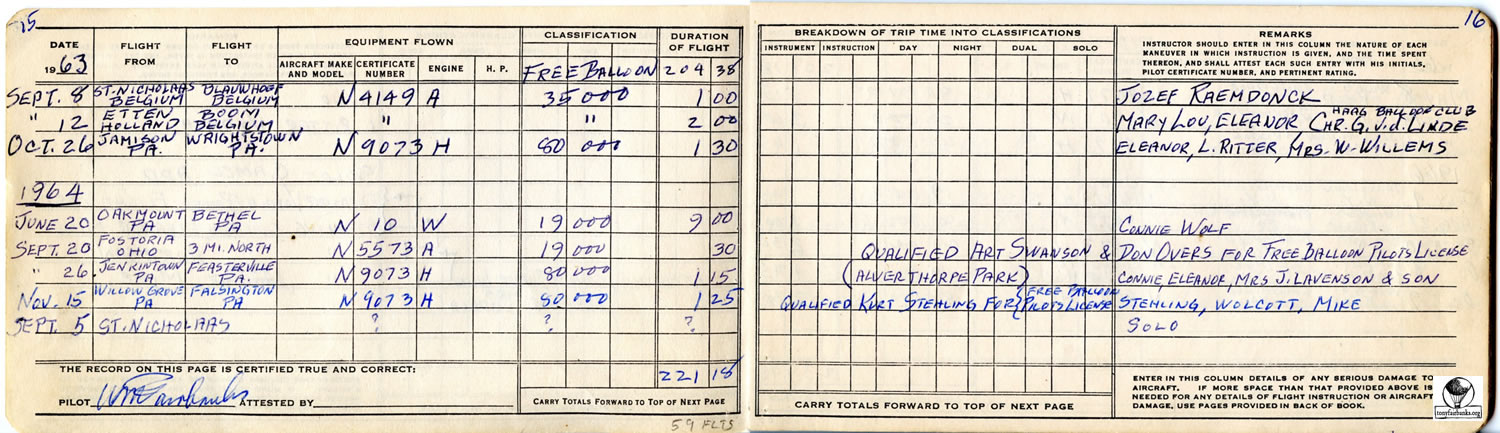 15
DATE
1963
FLIGHT FROM
FLIGHT TO
EQUIPMENT FLOWN
AIRCRAFT MAKE AND MODEL
CERTIFICATE NUMBER
ENGINE
H. P.
CLASSIFICATION
FREE BALLOON
DURATION OF FLIGHT
204 38
SEPT. 8 ST. NICHOLAAS BELGIUM BLAUWHOEF BELGIUM N4149A 35000 1 00
" 12 ETTEN HOLLAND BOOM BELGIUM " " 2 00
OCT. 26 JAMISON PA. WRIGHTSTOWN PA. N9073H 80 000 1 30
1964
JUNE 20 OAKMOUNT PA BETHEL PA N 10 W 19 000 9 00
SEPT. 20 FOSTORIA OHIO 3 MI. NORTH N5573A 19000 30
" 26 JENKINTOWN PA FEASTERVILLE PA. N9073H 80000 1 15
NOV. 15 WILLOW GROVE PA FALSINGTON PA N9073H 80000 1 25
SEPT. 5 ST. NICHOLAAS ? ? ?
THE RECORD ON THIS PAGE IS CERTIFIED TRUE AND CORRECT:
221 18
PILOT ATTESTED BY
CARRY TOTALS FORWARD TO TOP OF NEXT PAGE
59 FLTS
16
BREAKDOWN OF TRIP TIME INTO CLASSIFICATIONS
INSTRUMENT INSTRUCTION DAY NIGHT DUAL SOLO
REMARKS
INSTRUCTOR SHOULD ENTER IN THIS COLUMN THE NATURE OF EACH
MANEUVER IN WHICH INSTRUCTION IS GIVEN, AND THE TIME SPENT
THEREON, AND SHALL ATTEST EACH SUCH ENTRY WITH HIS INITIALS,
PILOT CERTIFICATE NUMBER, AND PERTINENT RATING.
JOZEF RAEMDONCK
HAAG BALLOON CLUB
MARY LOU, ELEANOR CHR. G. v.d. LINDE
ELEANOR, L. RITTER, MRS. W. WILLEMS
CONNIE WOLF
QUALIFIED ART SWANSON & DON OVERS FOR FREE BALLOON PILOTS LICENSE
(ALVERTHORPE PARK) CONNIE, ELEANOR, MRS J. LAVENSON & SON
QUALIFIED KURT STEHLING FOR FREE BALLOON PILOTS LICENSE STEHLING, WOLCOTT, MIKE
SOLO
CARRY TOTALS FORWARD TO TOP OF NEXT PAGE
ENTER IN THIS COLUMN DETAILS OF ANY SERIOUS DAMAGE TO
AIRCRAFT. IF MORE SPACE THAN THAT PROVIDED ABOVE IS
NEEDED FOR ANY DETAILS OF FLIGHT INSTRUCTION OR AIRCRAFT
DAMAGE, USE PAGES PROVIDED IN BACK OF BOOK.
tonyfairbanks.org